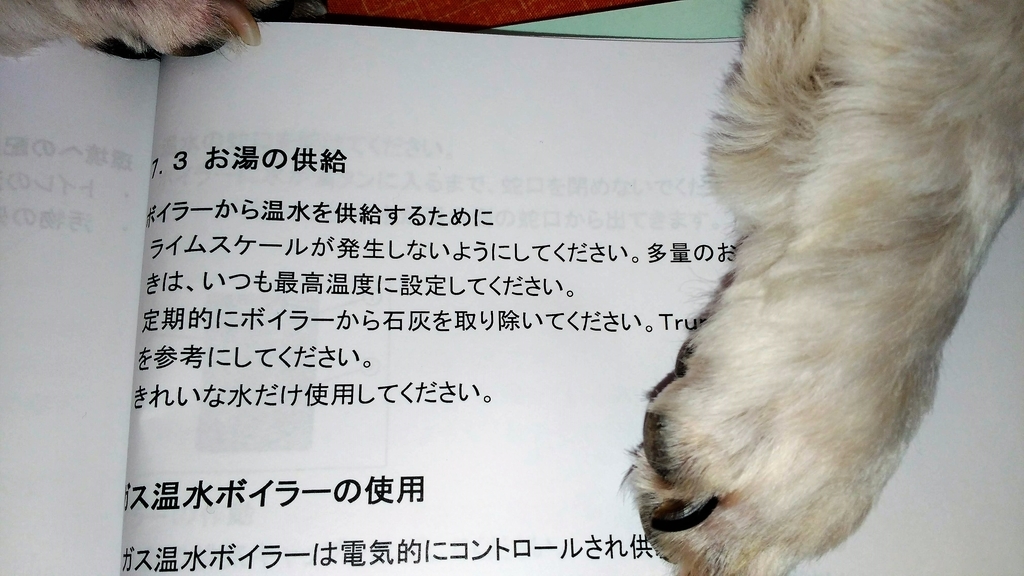 7.3 お湯の供給
ボイラーから温水を供給するために
ライムスケールが発生しないようにしてください。多量のお
きは、いつも最高温度に設定してください。
定期的にボイラーから石灰を取り除いてください。Tru
を参考にしてください。
きれいな水だけ使用してください。
ガス温水ボイラーの使用
ガス温水ボイラーは電気的にコントロールされ供